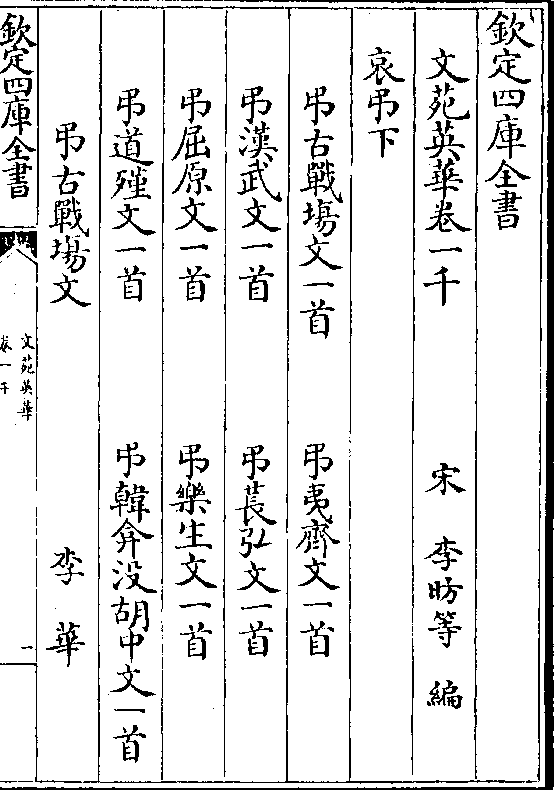 欽定四庫全書
文苑英華卷一千　宋　李昉等　編
哀弔下
弔古戰場文一首　弔夷齊文一首
弔漢武文一首　弔萇弘文一首
弔屈原文一首　弔樂生文一首
弔道殣文一首　弔韓弇没胡中文一首
弔古戰場文　李華
欽定四庫全書
文苑英華
卷一千
一